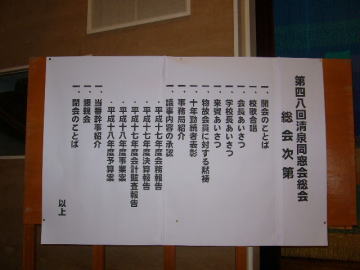 第四八回清泉同窓会総会
総会次第
一 開会のことば
一 校歌合唱
一 会長あいさつ
一 学校長あいさつ
一 来賓あいさつ
一 物故会員に対する黙祷
一 十年勤続者表彰
一 事務局紹介
一 議事内容の承認
・平成十七年度会務報告
・平成十七年度決算報告
・平成十七年度会計監査報告
・平成十八年度事業案
・平成十八年度予算案
一 当番幹事紹介
一 懇親会
一 閉会のことば
以上